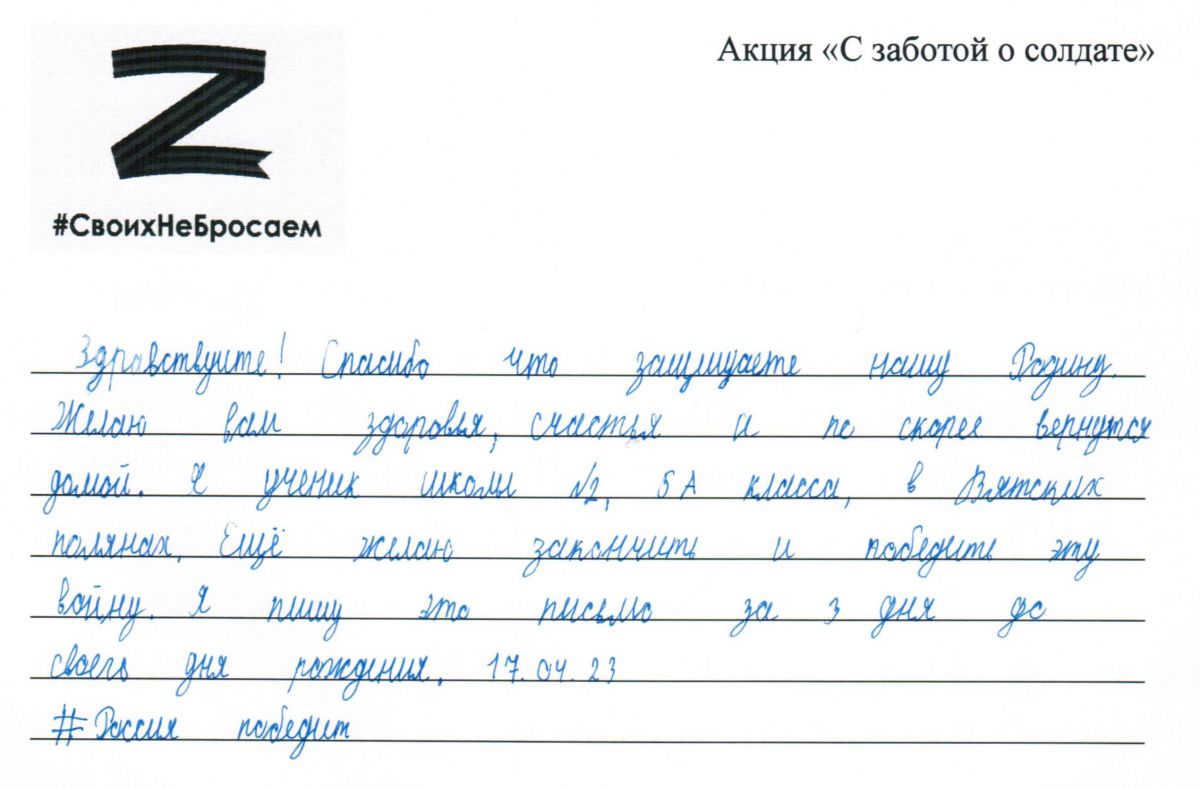 Акция «С заботой о солдате»
Z
#СвоихНеБросаем
Здравствуйте! Спасибо что защищаете нашу Родину.
Желаю вам здоровья, счастья и по скорее вернутся
домой. Я ученик школы №2, 5 А класса, в Вятских
полянах. Ещё желаю закончить и победить эту
войну. Я пишу это письмо за 3 дня до
своего дня рождения. 17.04.23
#Россия победит